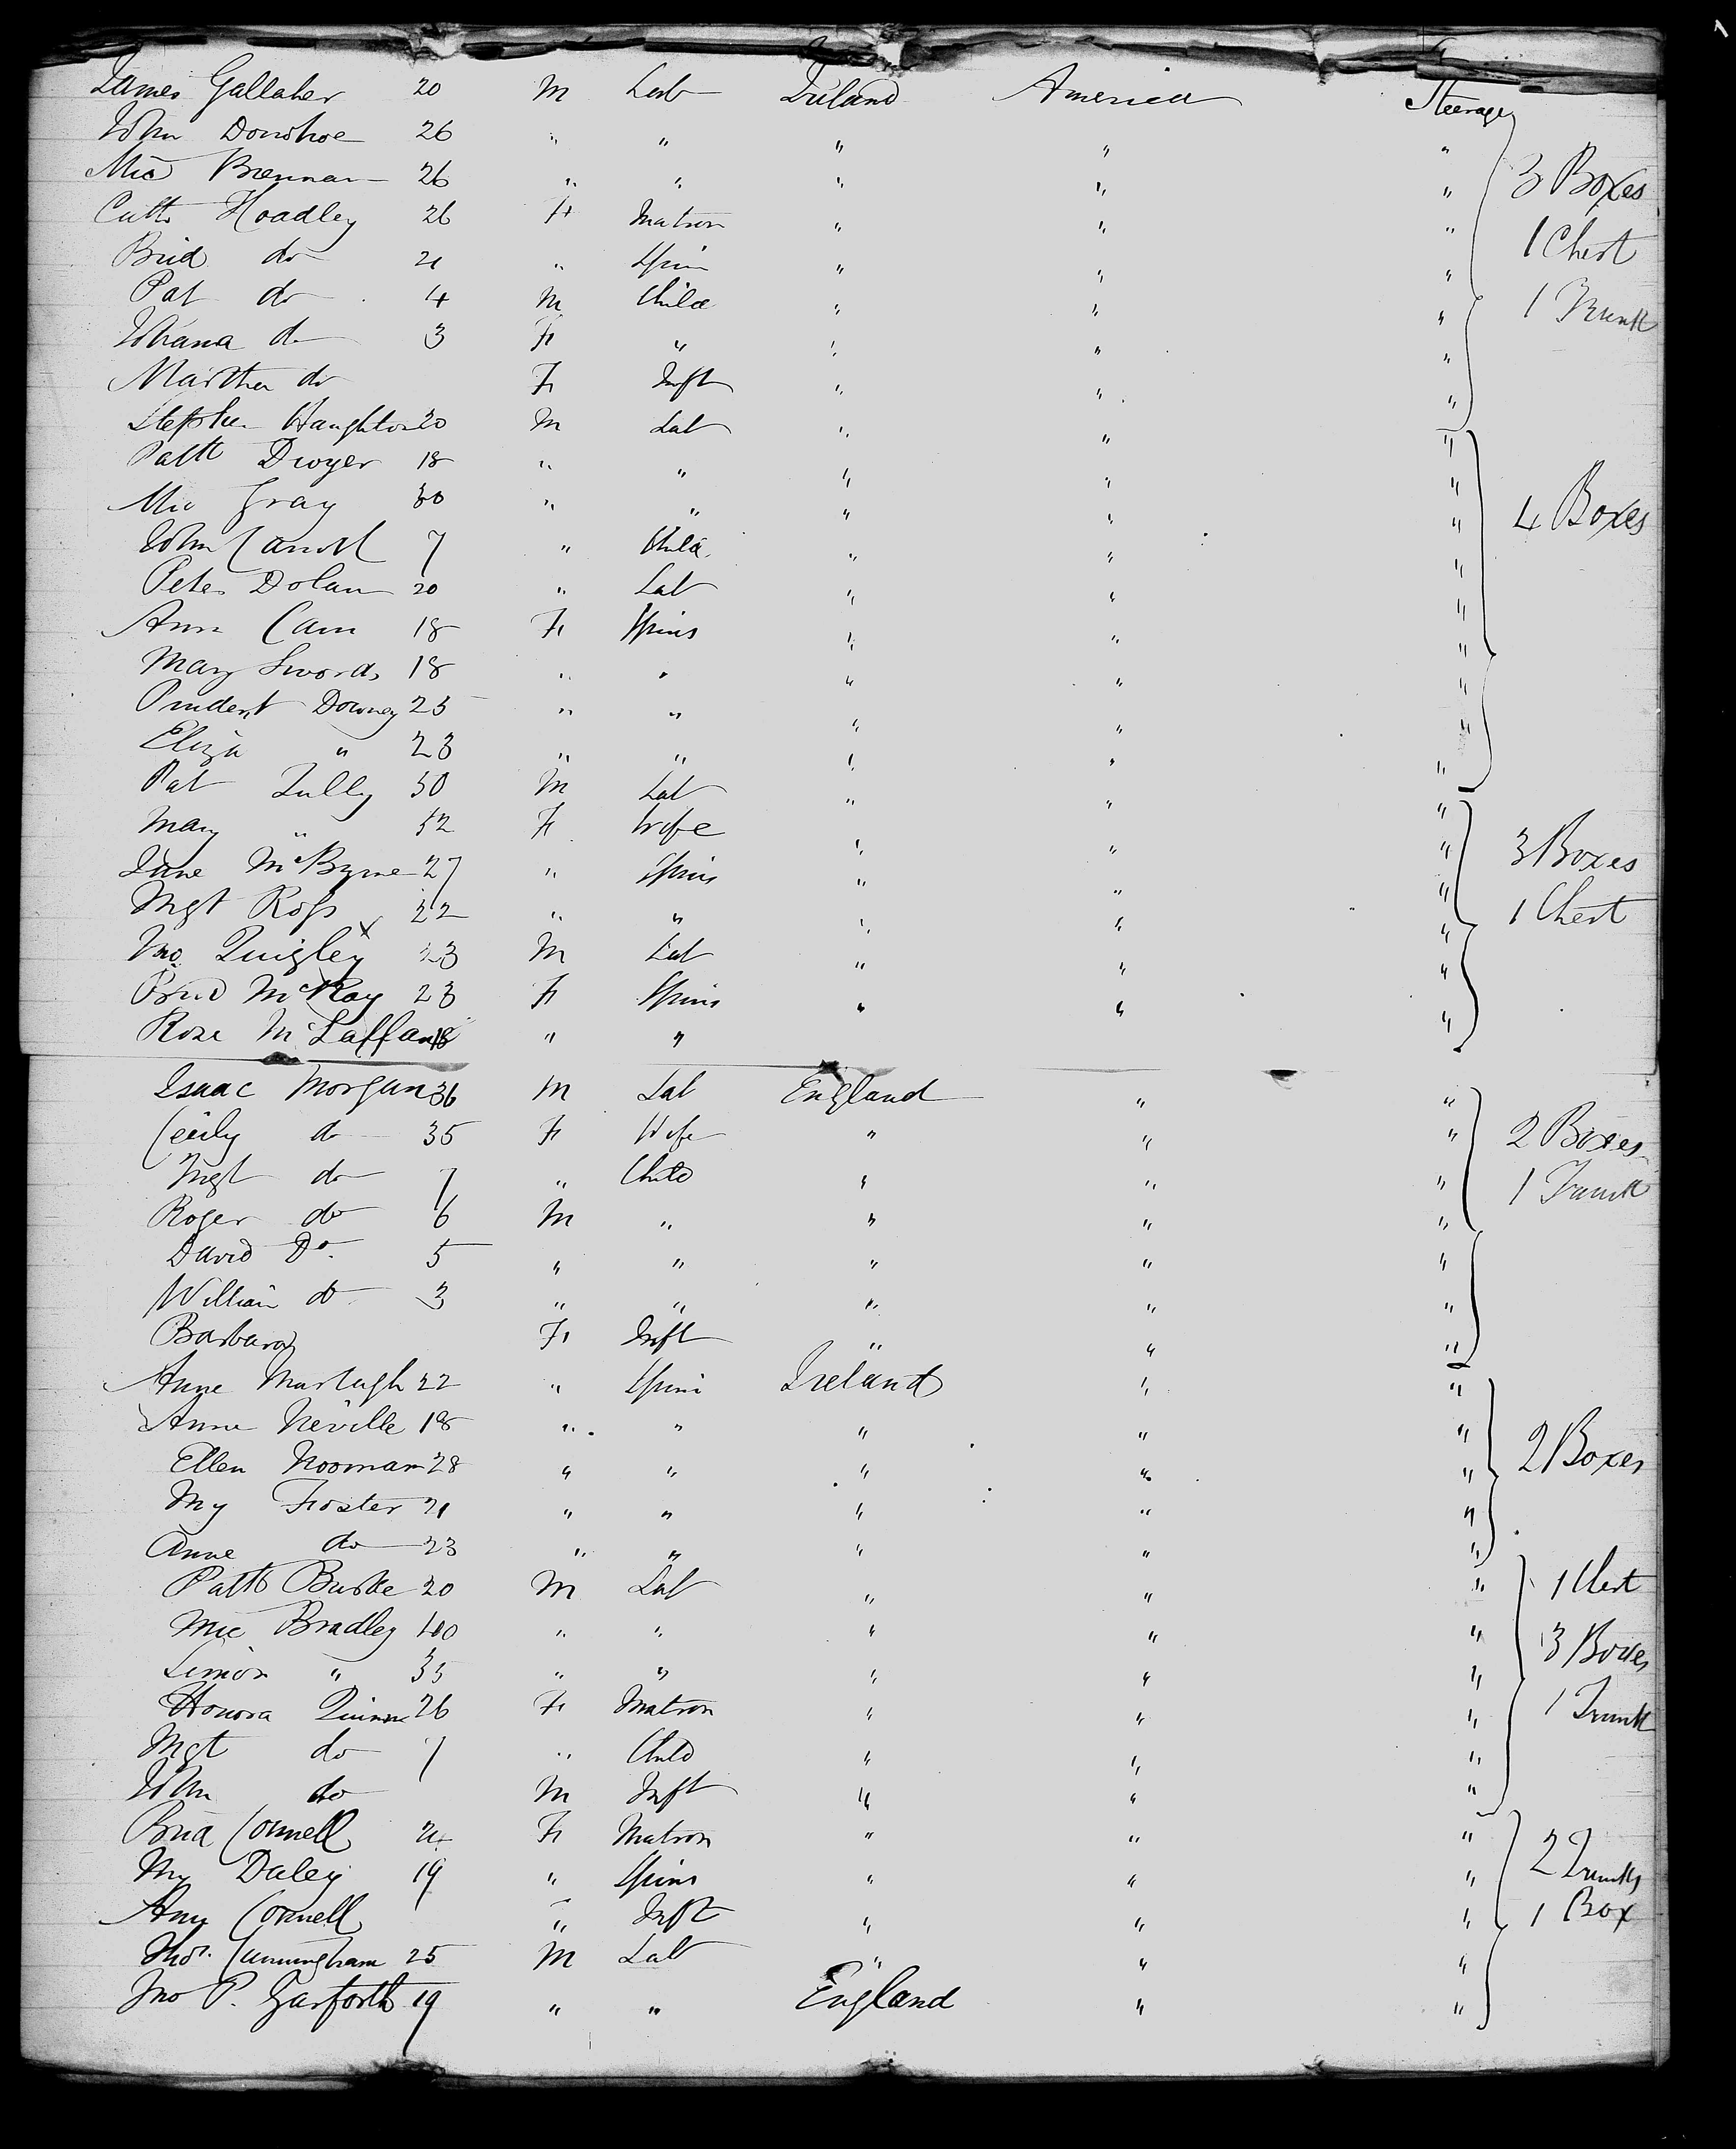 James Gallaher 20 M Lab Ireland America Steerage
John Donohoe 26 " " " " "
Mic Brennan 26 " " " " " 3 Boxes
Cath Hoadley 26 F Matron " " " 1 Chest
Brid do 21 " Spin " " "
Pat do 4 M Child " " " 1 Trunk
Johana do 3 F " " " "
Martha do F Inft " " "
Stephen Haughton 20 M Lab " " "
Patk Dwyer 18 " " " " "
Mic Gray 30 " " " " " 4 Boxes
John Carroll 7 " Child " " "
Peter Dolan 20 " Lab " " "
Ann Cain 18 F Spins " " "
Mary Swords 18 " " " " "
Prudent Downey 25 " " " " "
Eliza " 23 " " " " "
Pat Tully 50 M Lab " " "
Mary " 52 F Wife " " " 3 Boxes
Jane McByrne 27 " Spins " " "
Mgt Ross 22 " " " " " 1 Chest
Jno. Quigley x 23 M Lab " " "
Brid McKay 23 F Spins " " "
Rose McLaffan 18 " "
Isaac Morgan 36 M Lab England " "
Cecily do 35 F Wife " " " 2 Boxes
Mgt do 7 " Child " " " 1 Trunk
Roger do 6 M " " " "
David Do. 5 " " " " "
William do 3 " " " " "
Barbara F Inft " " "
Anne Murtagh 22 " Spins Ireland " "
Anne Neville 18 " " " " "
Ellen Noonan 28 " " " " " 2 Boxes
My Foster 21 " " " " "
Anne do 23 " " " " "
Patk Burke 20 M Lab " " " 1 Chest
Mic Bradley 40 " " " " " 3 Boxes
Simon " 35 " " " " "
Honora Quinn 26 F Matron " " " 1 Trunk
Mgt do 7 " Child " " "
John do M Inft " " "
Brid Connell 24 F Matron " " "
My Daley 19 " Spins " " " 2 Trunks
Amy Connell " Inft " " " 1 Box
Thos. Cunningham 25 M Lab " " "
Jno P. Garforth 19 " " England " "